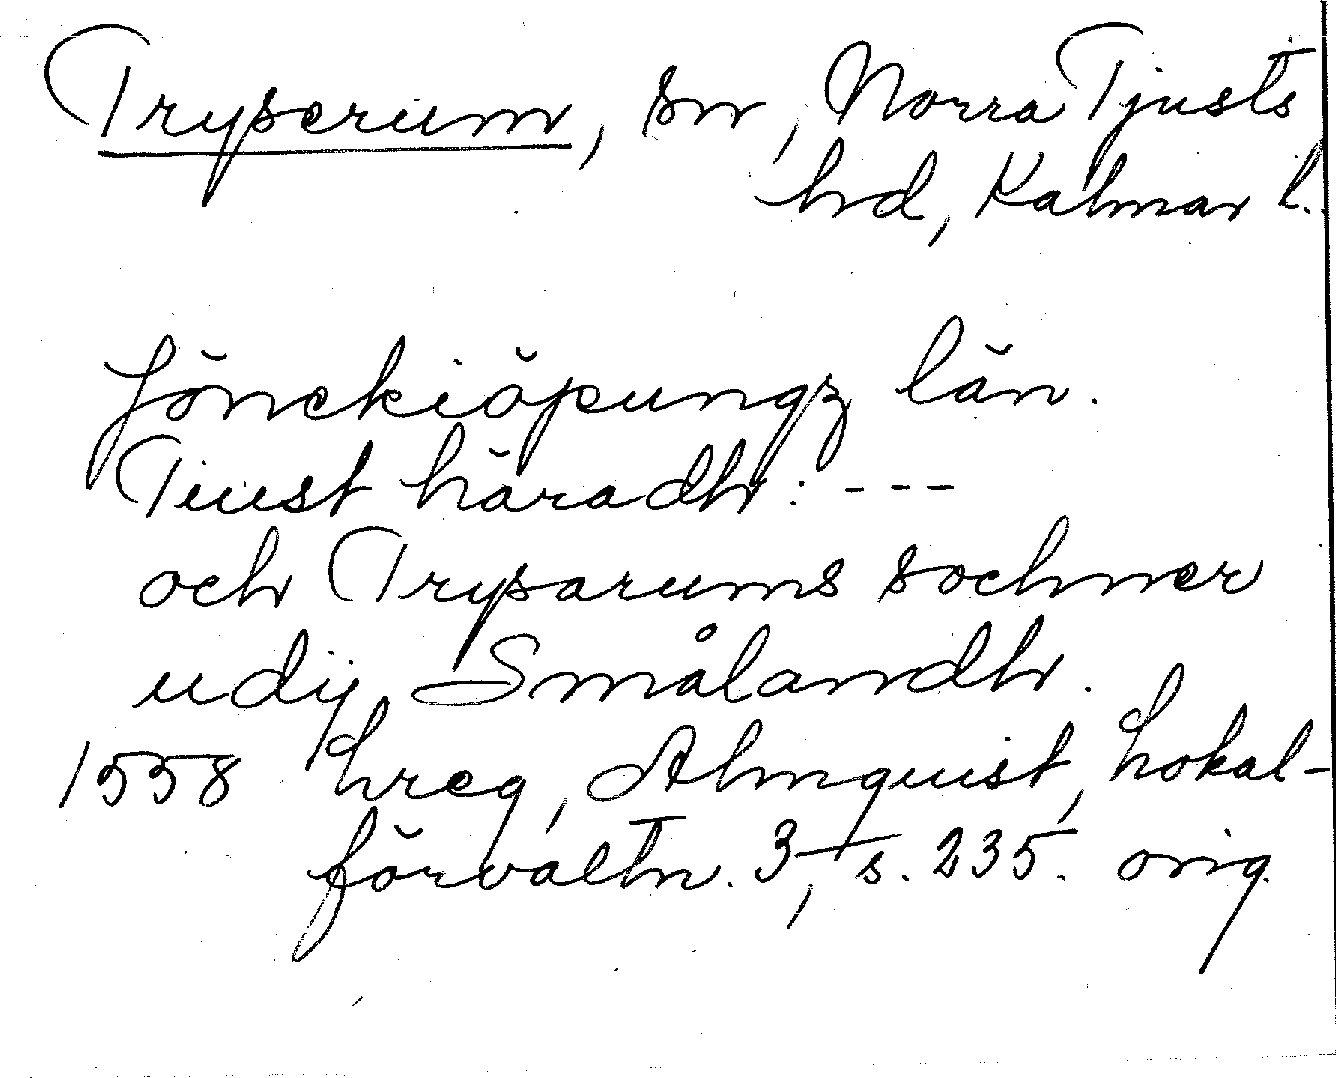 Tryserum, sn, Norra Tjusts
hd, Kalmar l.
Jönckiöpungz län.
Tiust häradh: ---
och Trysarums sochner
udij Smålandh.
1558 hreg, Almquist, Lokal-
förvaltn. 3, s. 235. orig.